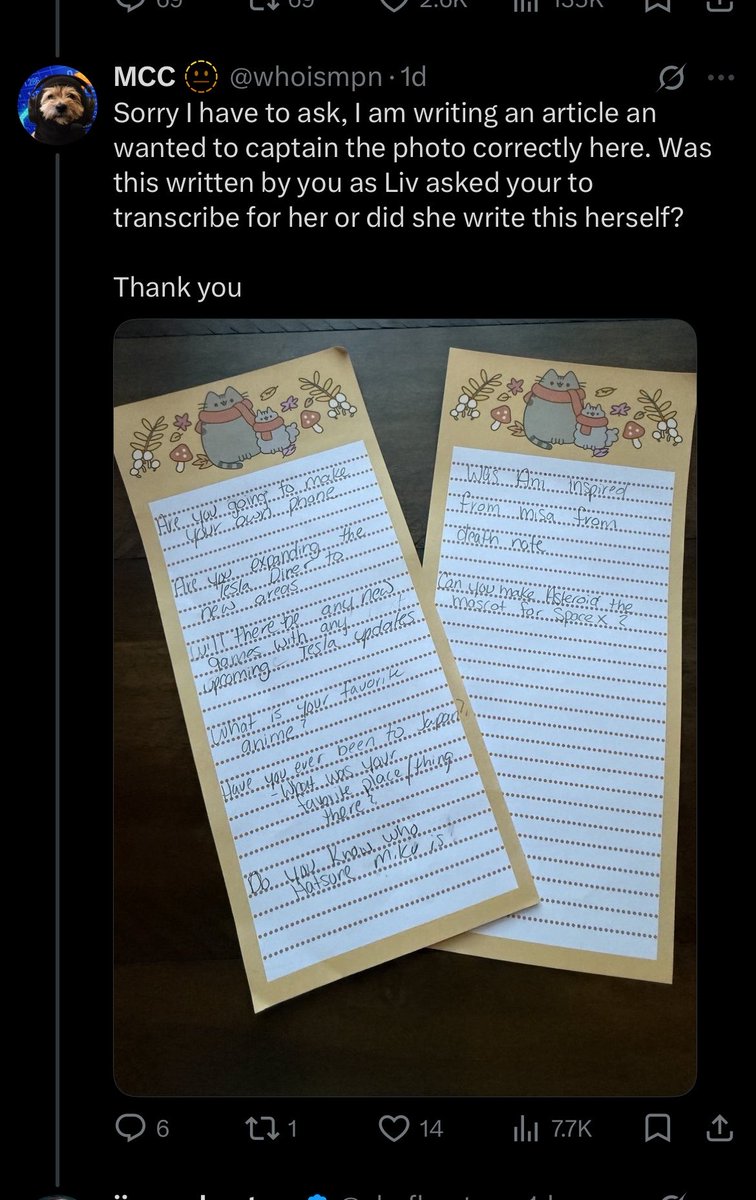 69
69
2.6K
135K
MCC @whoismpn · 1d
Sorry I have to ask, I am writing an article an
wanted to captain the photo correctly here. Was
this written by you as Liv asked your to
transcribe for her or did she write this herself?
Thank you
Are you going to make
your own phone
Are you expanding the
Tesla Diner to
new areas
Will there be any new
games with any
upcoming Tesla updates
What is your favorite
anime?
Have you ever been to Japan?
- What was your
favorite place/thing
there?
Do you know who
Hatsune Miku is?
Was Ani inspired
from misa from
death note
Can you make Asteroid the
mascot for SpaceX?
6
1
14
7.7K